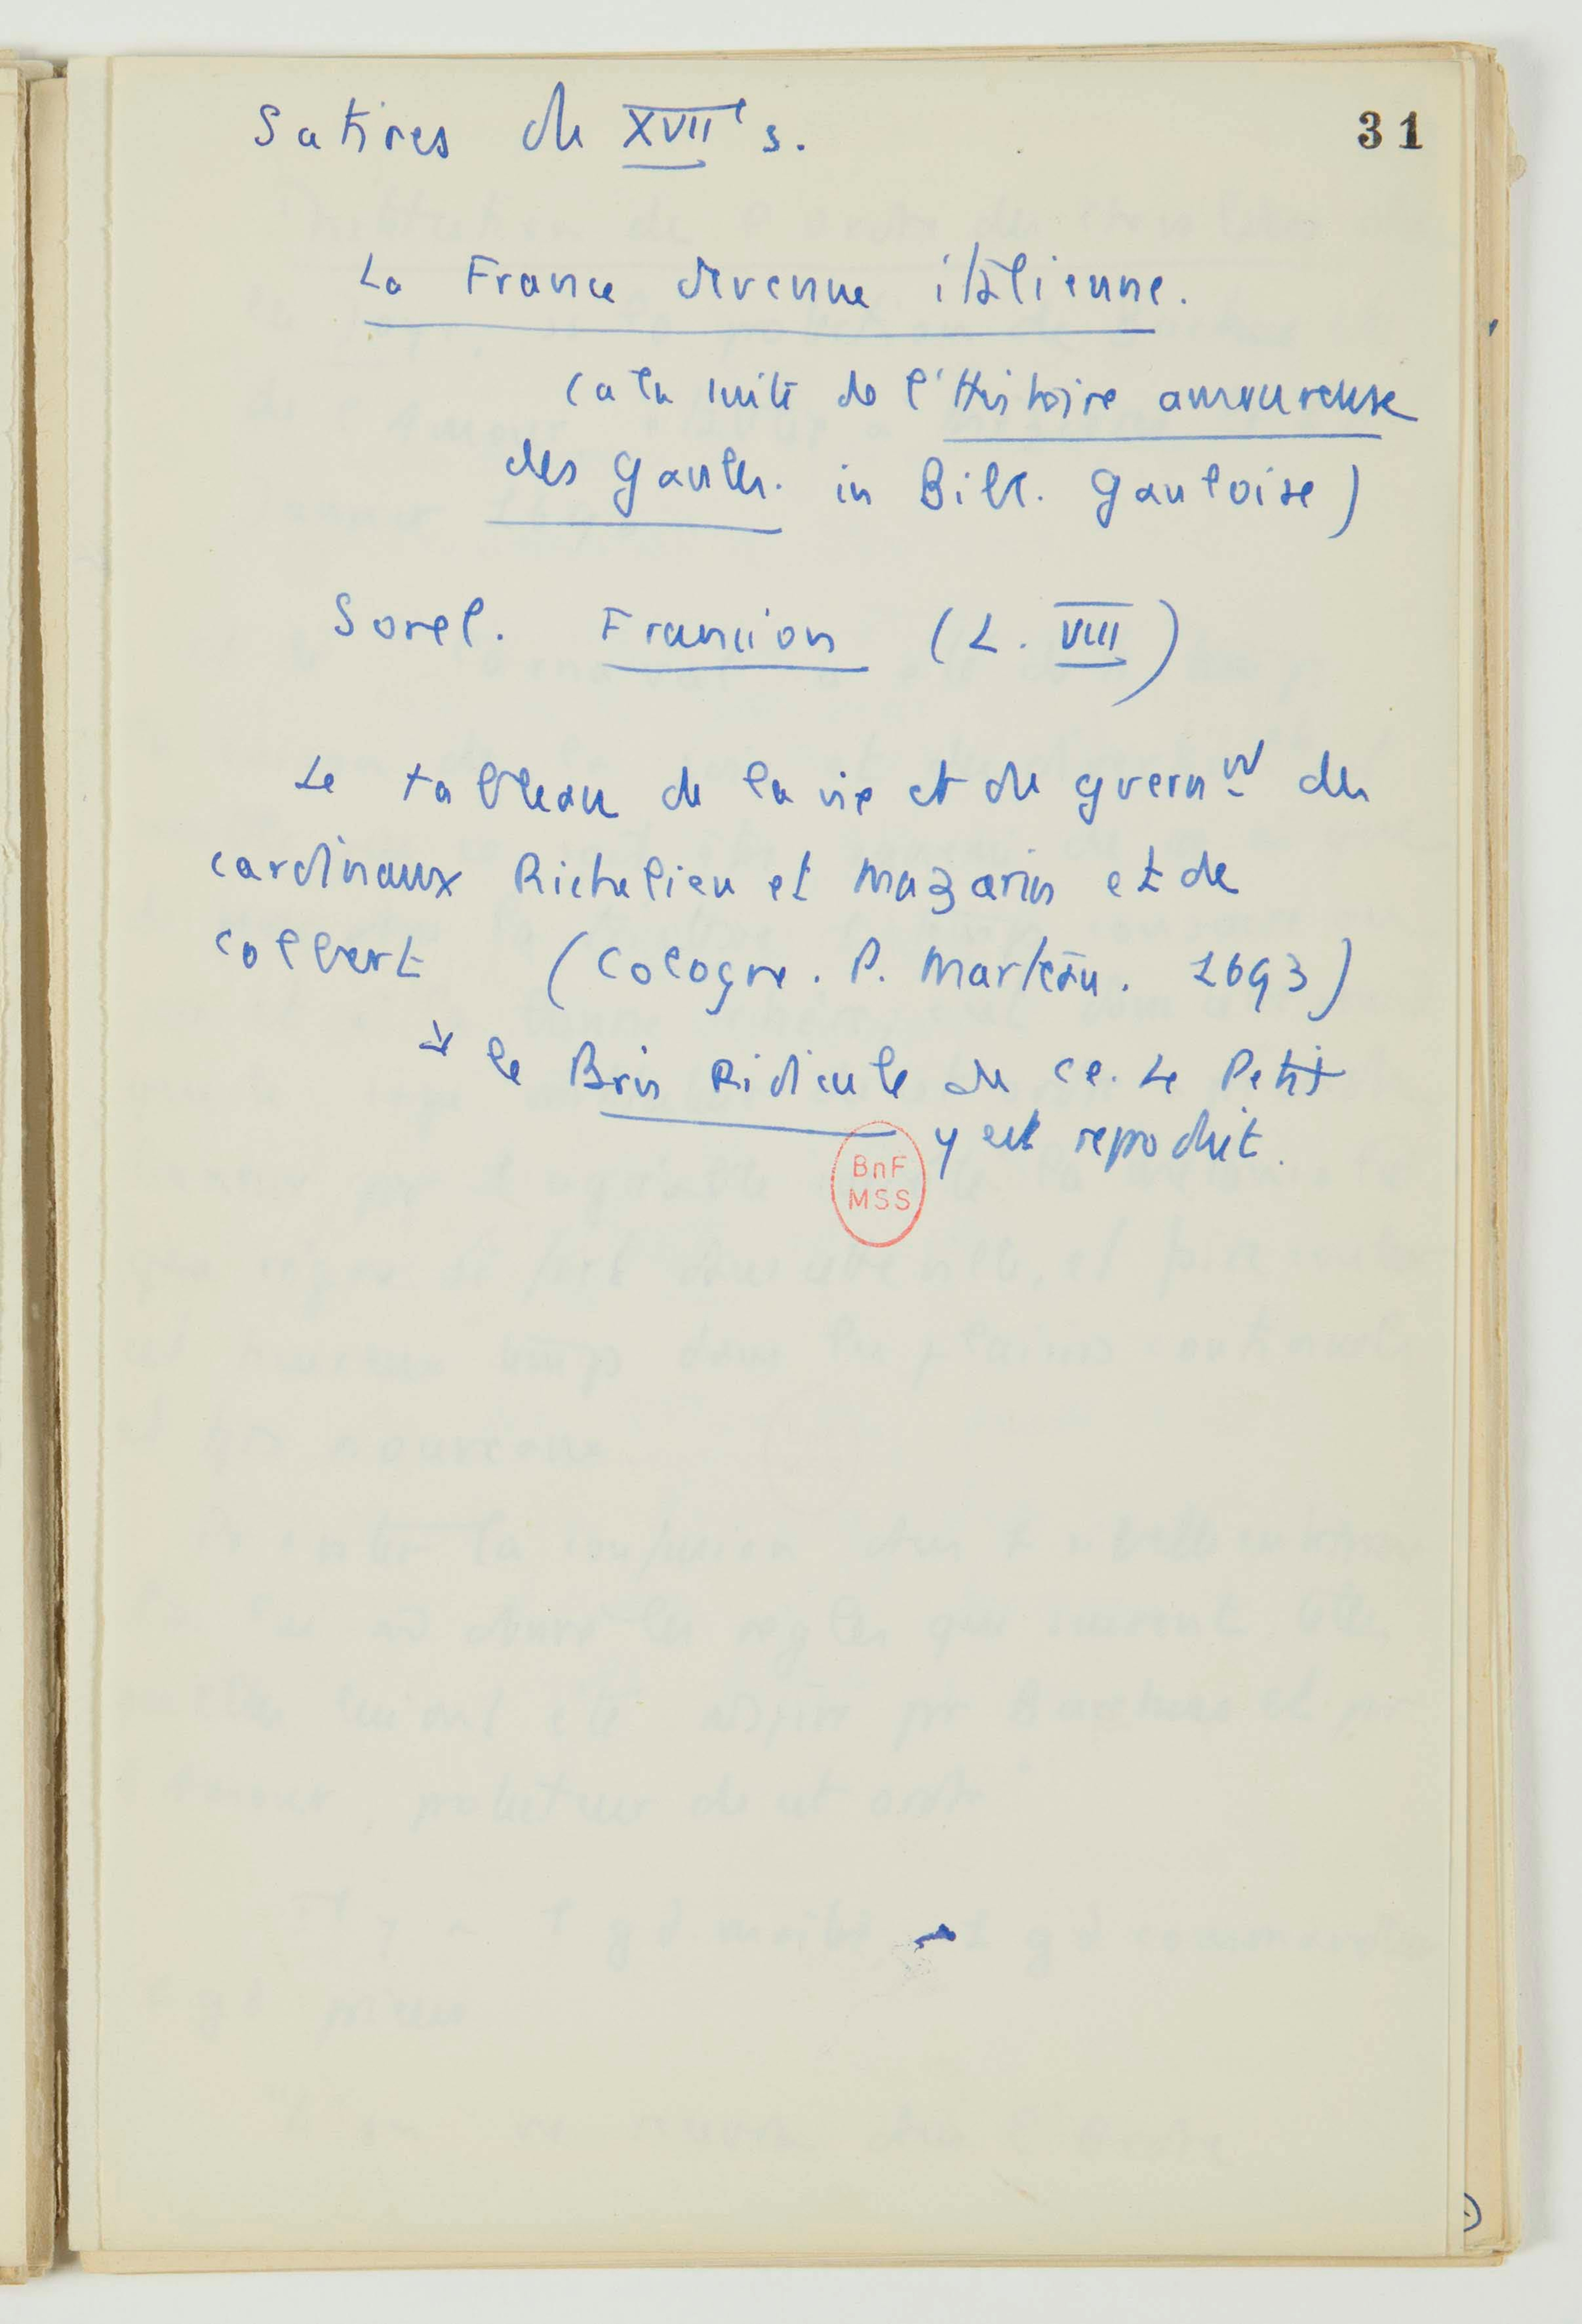 31
Satires du XVIIe s.
La France devenue italienne.
(à la suite de l'Histoire amoureuse
des Gaules. in Bibl. Gauloise)
Sorel. Francion (L. VIII)
Le tableau de la vie et du gvernnt des
cardinaux Richelieu et Mazarin et de
Colbert (Cologne. P. Marteau. 1693)
le Paris Ridicule de Cl. Le Petit
y est reproduit.
BnF
MSS